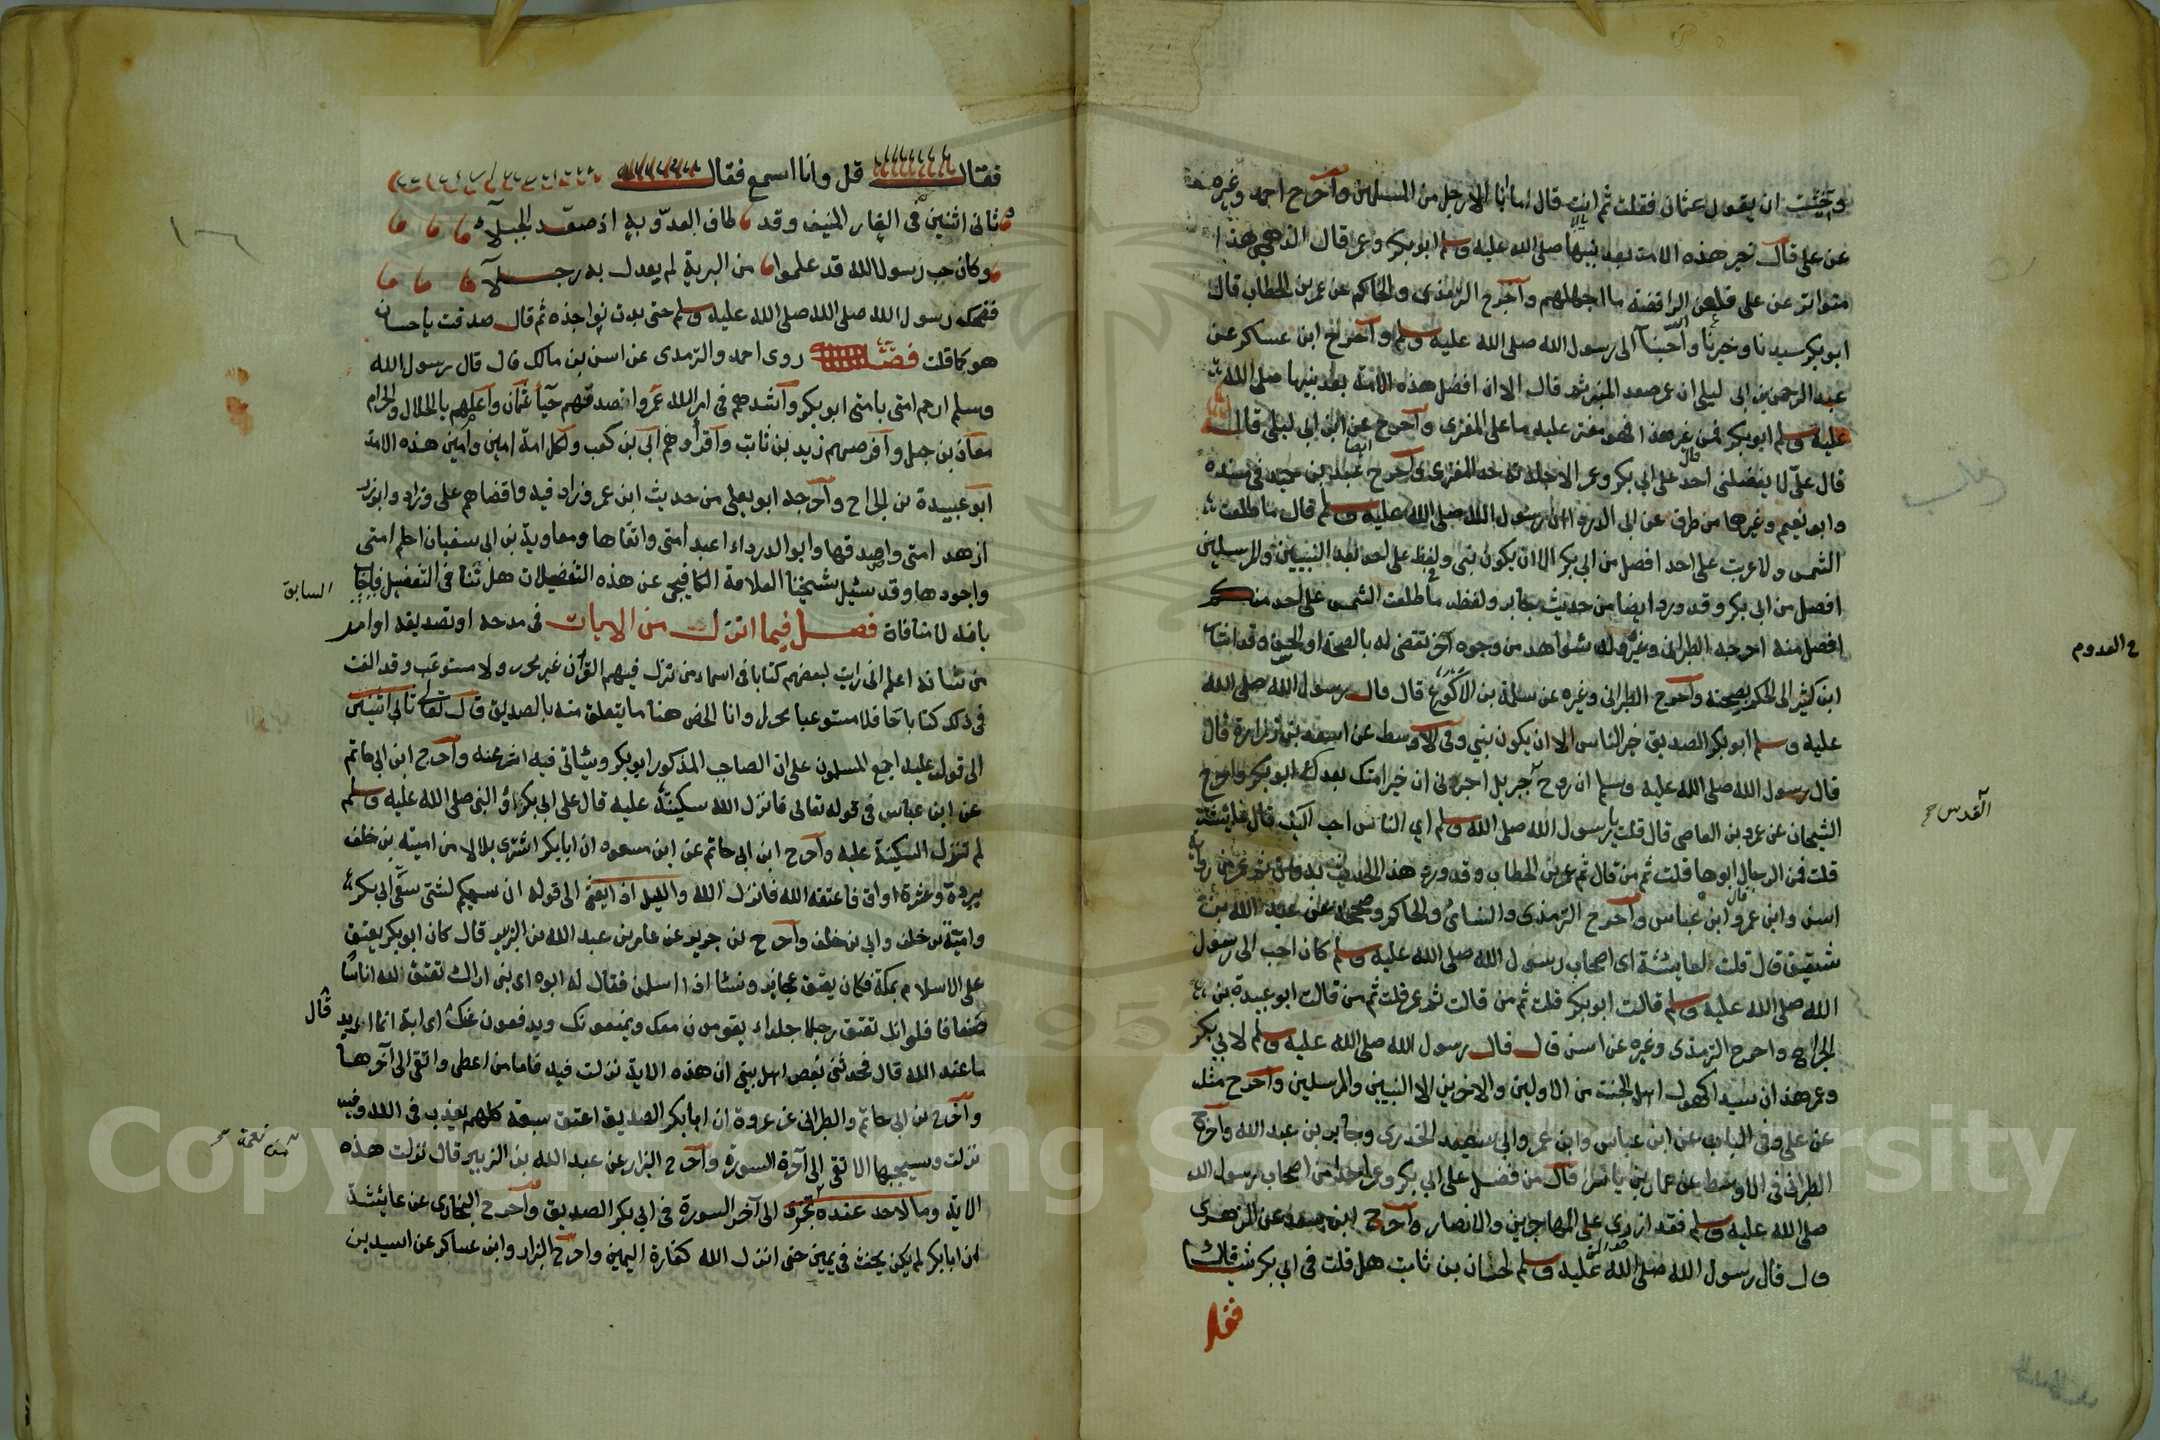 وخشيت ان يقول عثمان فقلت ثم انت قال ما انا الا رجل من المسلمين واخرج احمد وغيره
عن علي قال خير هذه الامة بعد نبيها صلى الله عليه وسلم ابو بكر وعمر قال الذهبي هذا
متواتر عن علي فلعن الرافضة ما اجهلهم واخرج الترمذي والحاكم عن عمر بن الخطاب قال
ابو بكر سيدنا وخيرنا واحبنا الى رسول الله صلى الله عليه وسلم واخرج ابن عساكر عن
عبد الرحمن بن ابي ليلى ان عمر صعد المنبر ثم قال الا ان افضل هذه الامة بعد نبيها صلى الله
عليه وسلم ابو بكر فمن غير هذا فهو مفتر عليه ما على المفترى واخرج عن ابن ابي ليلى قال
قال علي لا يفضلني احد على ابي بكر وعمر الا جلدته حد المفترى واخرج عبد بن حميد في مسنده
وابو نعيم وغيرهما من طرق عن ابي الدرداء ان رسول الله صلى الله عليه وسلم قال ما طلعت
الشمس ولا غربت على احد افضل من ابي بكر الا ان يكون نبي ولفظ على احد بعد النبيين والمرسلين
افضل من ابي بكر وقد ورد ايضا من حديث جابر ولفظه ما طلعت الشمس على احد منكم
افضل منه اخرجه الطبراني وغيره وله شواهد من وجوه اخر تقتضي له بالصحة او الحسن وقد اشار
ابن كثير الى الحكم بصحته واخرج الطبراني وغيره عن سلمة بن الاكوع قال قال رسول الله صلى الله
عليه وسلم ابو بكر الصديق خير الناس الا ان يكون نبي وفي الاوسط عن اسعد بن زرارة قال
قال رسول الله صلى الله عليه وسلم ان روح جبريل اخبرني ان خير امتك بعدك ابو بكر واخرج
الشيخان عن عمرو بن العاصي قال قلت يا رسول الله صلى الله وسلم اي الناس احب اليك قال عايشة
قلت فمن الرجال قال ابوها قلت ثم من قال ثم عمر بن الخطاب وقد ورد هذا الحديث
انس وابن عمرو وابن عباس واخرج الترمذي والنسائي والحاكم وصححه عن عبد الله بن
شقيق قال قلت لعايشة اي اصحاب رسول الله صلى الله عليه وسلم كان احب الى رسول
الله صلى الله عليه وسلم قالت ابو بكر قلت ثم من قالت ثم عمر قلت ثم من قالت ابو عبيدة بن
الجراح واخرج الترمذي وغيره عن انس قال قال رسول الله صلى الله عليه وسلم لابي بكر
وعمر هذان سيدا كهول اهل الجنة من الاولين والاخرين الا النبيين والمرسلين واخرج مثله
عن علي وفي الباب عن ابن عباس وابن عمر وابي سعيد الخدري وجابر بن عبد الله واخرج
الطبراني في الاوسط عن عمار بن ياسر قال من فضل على ابي بكر وعمر احدا من اصحاب رسول الله
صلى الله عليه وسلم فقد ازرى على المهاجرين والانصار واخرج ابن سعد عن الزهري
قال قال رسول الله صلى الله عليه وسلم لحسان بن ثابت هل قلت في ابي بكر شيا قال
فقد
ح القدوم
القدس صح
فقال قل وانا اسمع فقال
وثاني اثنين في الغار المنيف وقد طاف العدو به اذ صعد الجبلا
وكان حب رسول الله قد علموا من البرية لم يعدل به رجلا
فضحك رسول الله صلى الله صلى الله عليه وسلم حتى بدت نواجذه ثم قال صدقت يا حسان
هو كما قلت فصل روى احمد والترمذي عن انس بن مالك قال قال رسول الله
وسلم ارحم امتي بامتي ابو بكر واشدهم في امر الله عمر واصدقهم حيا عثمان واعلمهم بالحلال والحرام
معاذ بن جبل وافرضهم زيد بن ثابت واقرأوهم ابي بن كعب ولكل امة امين وامين هذه الامة
ابو عبيدة بن الجراح واخرجه ابو يعلى من حديث ابن عمر وزاد فيه واقضاهم علي وزاد وابو ذر
ازهد امتي واصدقها وابو الدرداء اعبد امتي واتقاها ومعاوية بن ابي سفيان احلم امتي
واجودها وقد سئل شيخنا العلامة الكافيجي عن هذه التفضيلات هل تنافي التفضيل فاجاب
السابق
بانه لا منافاة فصل فيما انزل من الايات في مدحه او تصديقه او امر
من شانه اعلم اني رايت لبعضهم كتابا في اسماء من نزل فيهم القرآن غير محرر ولا مستوعب وقد الفت
في ذلك كتابا حافلا مستوعبا محررا وانا الخص هنا ما يتعلق منه بالصديق قال تعالى ثاني اثنين
الى قوله عليه اجمع المسلمون على ان الصاحب المذكور ابو بكر وسياتي فيه اثر عنه واخرج ابن ابي حاتم
عن ابن عباس في قوله تعالى فانزل الله سكينته عليه قال على ابي بكر ان النبي صلى الله عليه وسلم
لم تزل السكينة عليه واخرج ابن ابي حاتم عن ابن مسعود ان ابا بكر اشترى بلالا من امية بن خلف
ببردة وعشرة اواق فاعتقه الله فانزل الله والليل اذا يغشى الى قوله ان سعيكم لشتى سعي ابي بكر
وامية بن خلف وابي بن خلف واخرج بن جرير عن عامر بن عبد الله بن الزبير قال كان ابو بكر يعتق
على الاسلام بمكة فكان يعتق عجايز ونسا اذا اسلمن فقال له ابوه اي بني اراك تعتق اناسا
ضعافا فلو انك تعتق رجالا جلداء يقومون معك ويمنعونك ويدفعون عنك قال اي ابة انما اريد
ما عند الله قال فحدثني بعض اهل بيتي ان هذه الاية نزلت فيه فاما من اعطى واتقى الى آخرها
واخرج بن ابي حاتم والطبراني عن عروة ان ابا بكر الصديق اعتق سبعة كلهم يعذب في الله وفيه
نزلت وسيجنبها الاتقى الى آخر السورة واخرج البزار عن عبد الله بن الزبير قال نزلت هذه
من نعمة صح
الاية وما لاحد عنده تجزى الى آخر السورة في ابي بكر الصديق واخرج البخاري عن عايشة
ان ابا بكر لم يكن يحنث في يمين حتى انزل الله كفارة اليمين واخرج البزار وابن عساكر عن اسيد بن
Copyright © King Saud University
1957